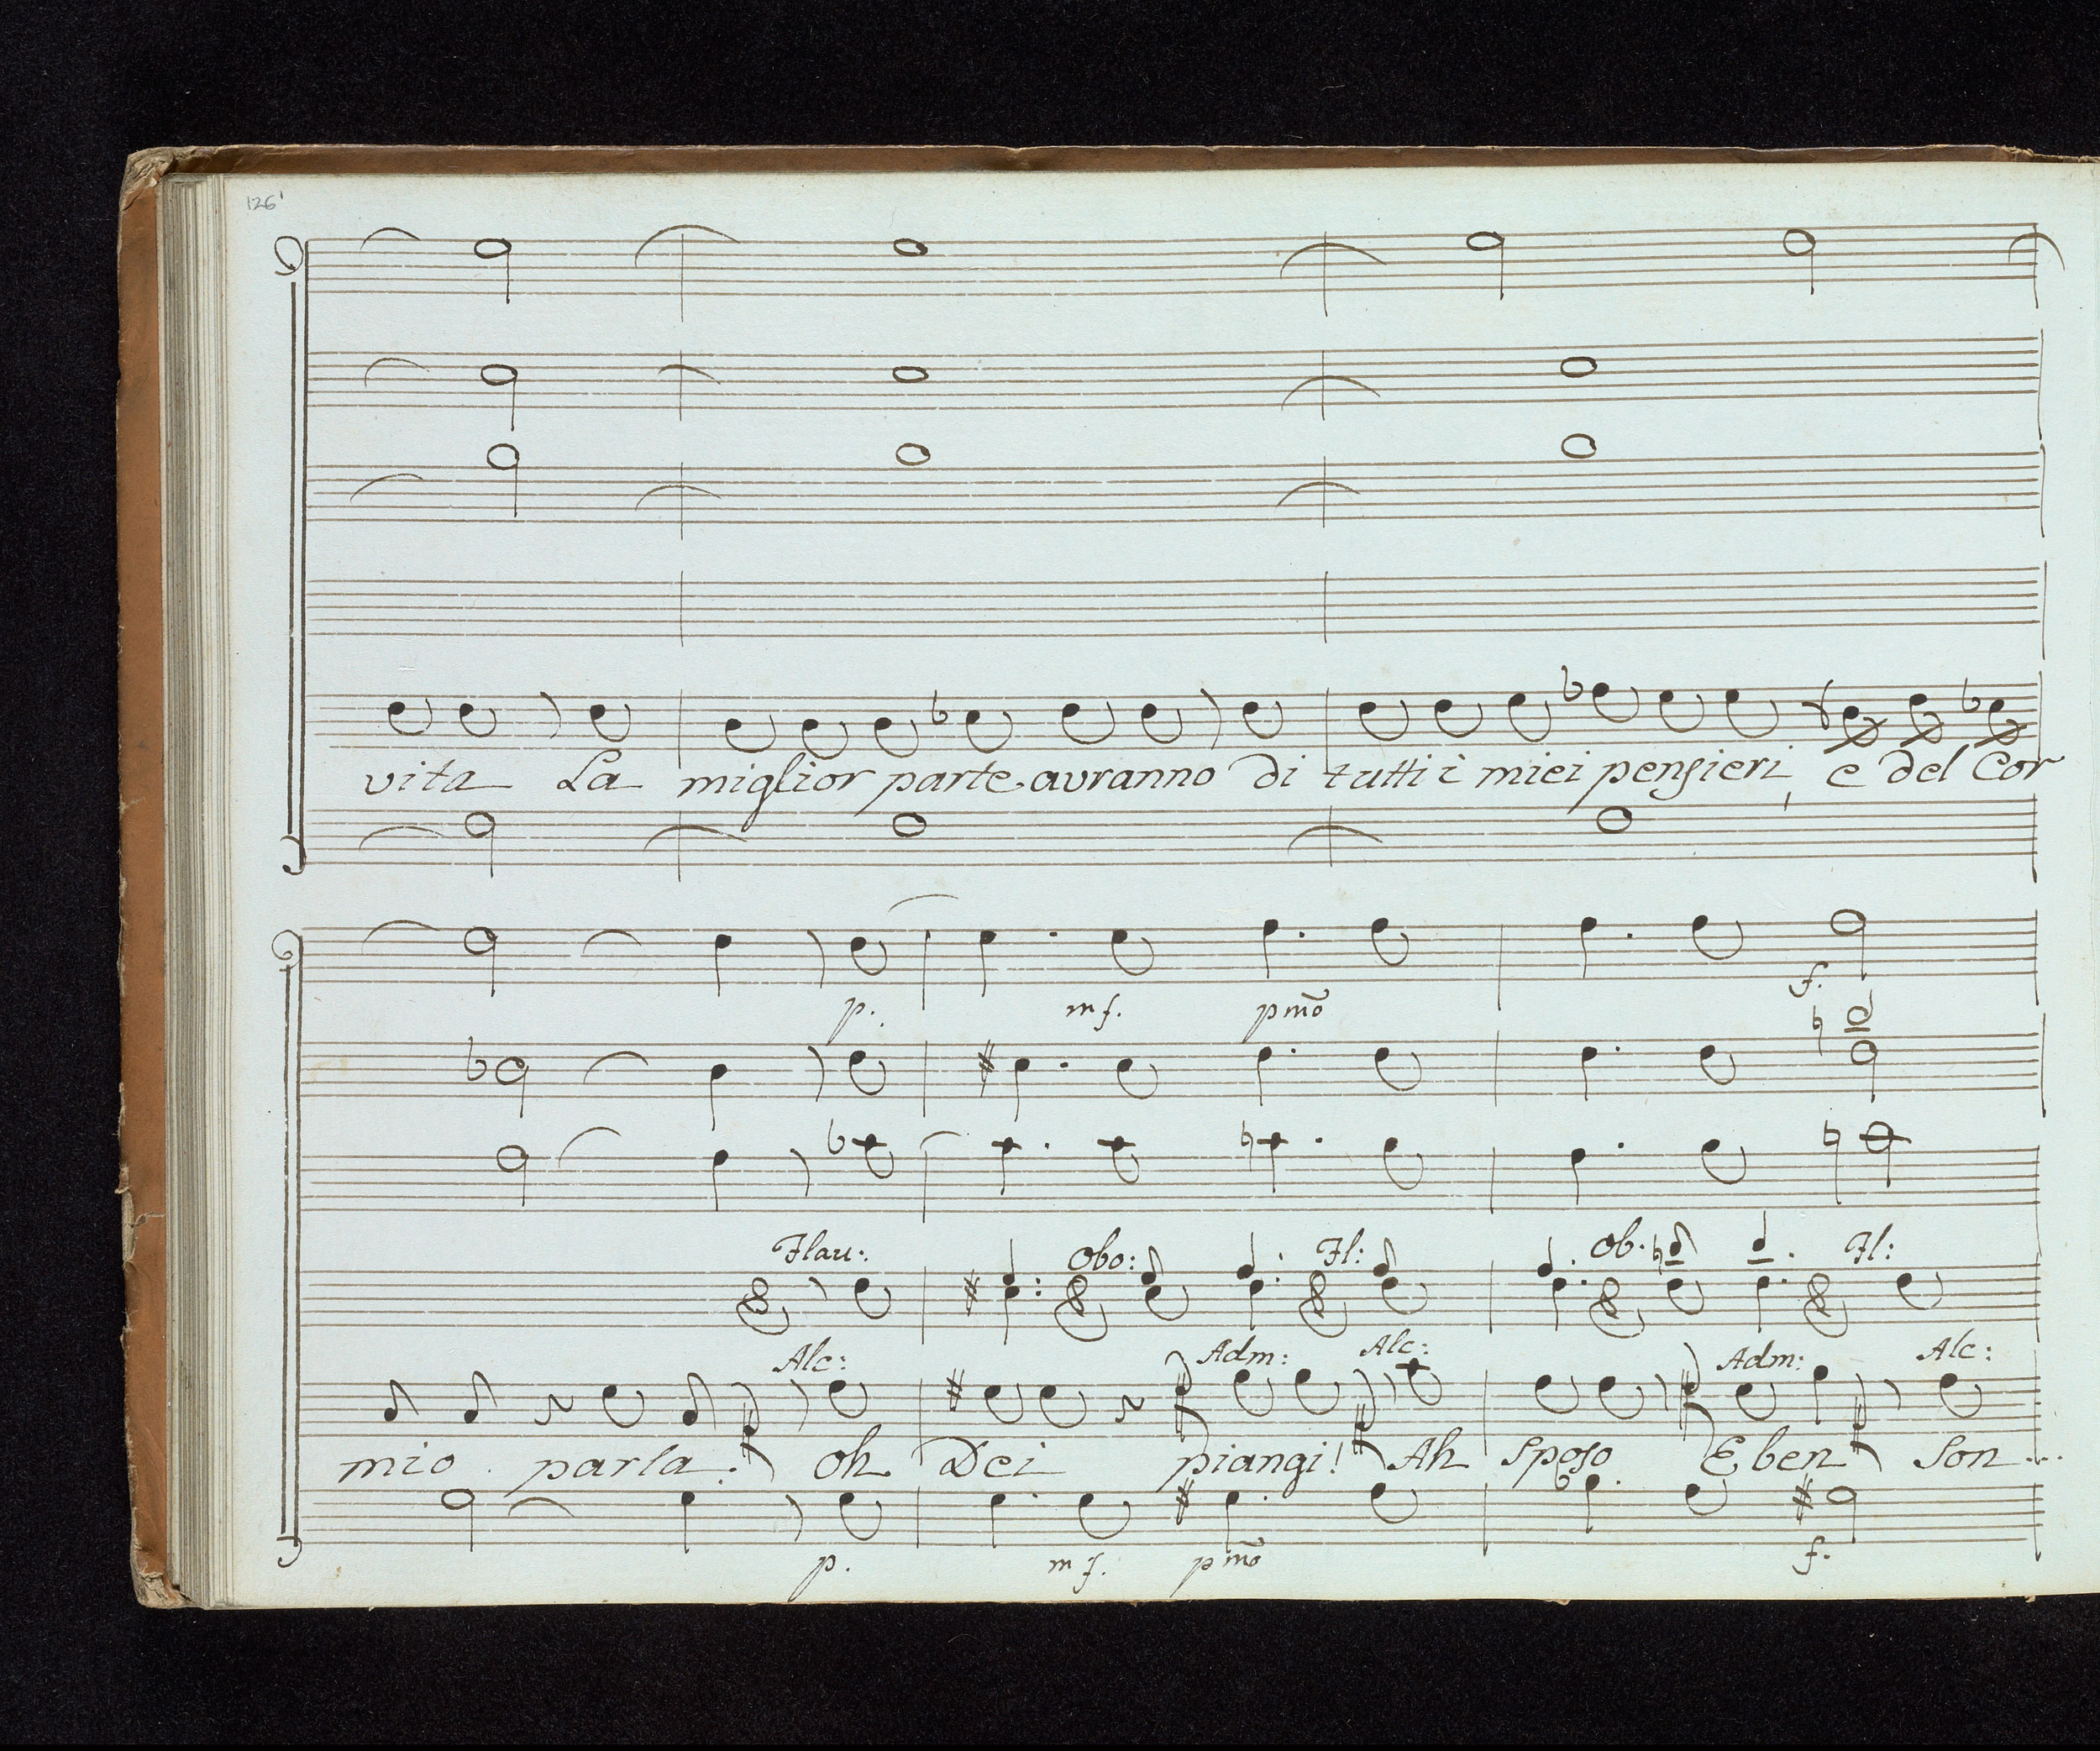 126'
vita La miglior parte avranno di tutti i miei pensieri, e del Cor
p. mf. pmo f.
Flau: Obo: Fl: Ob. Fl:
Alc: Adm: Alc: Adm: Alc:
mio parla. oh Dei piangi! Ah Sposo Eben Son...
p. mf. pmo f.